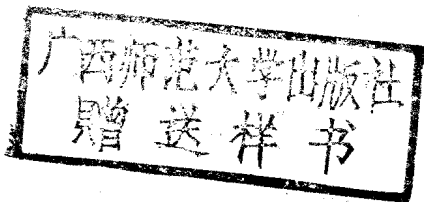 广西师范大学出版社
赠送样书